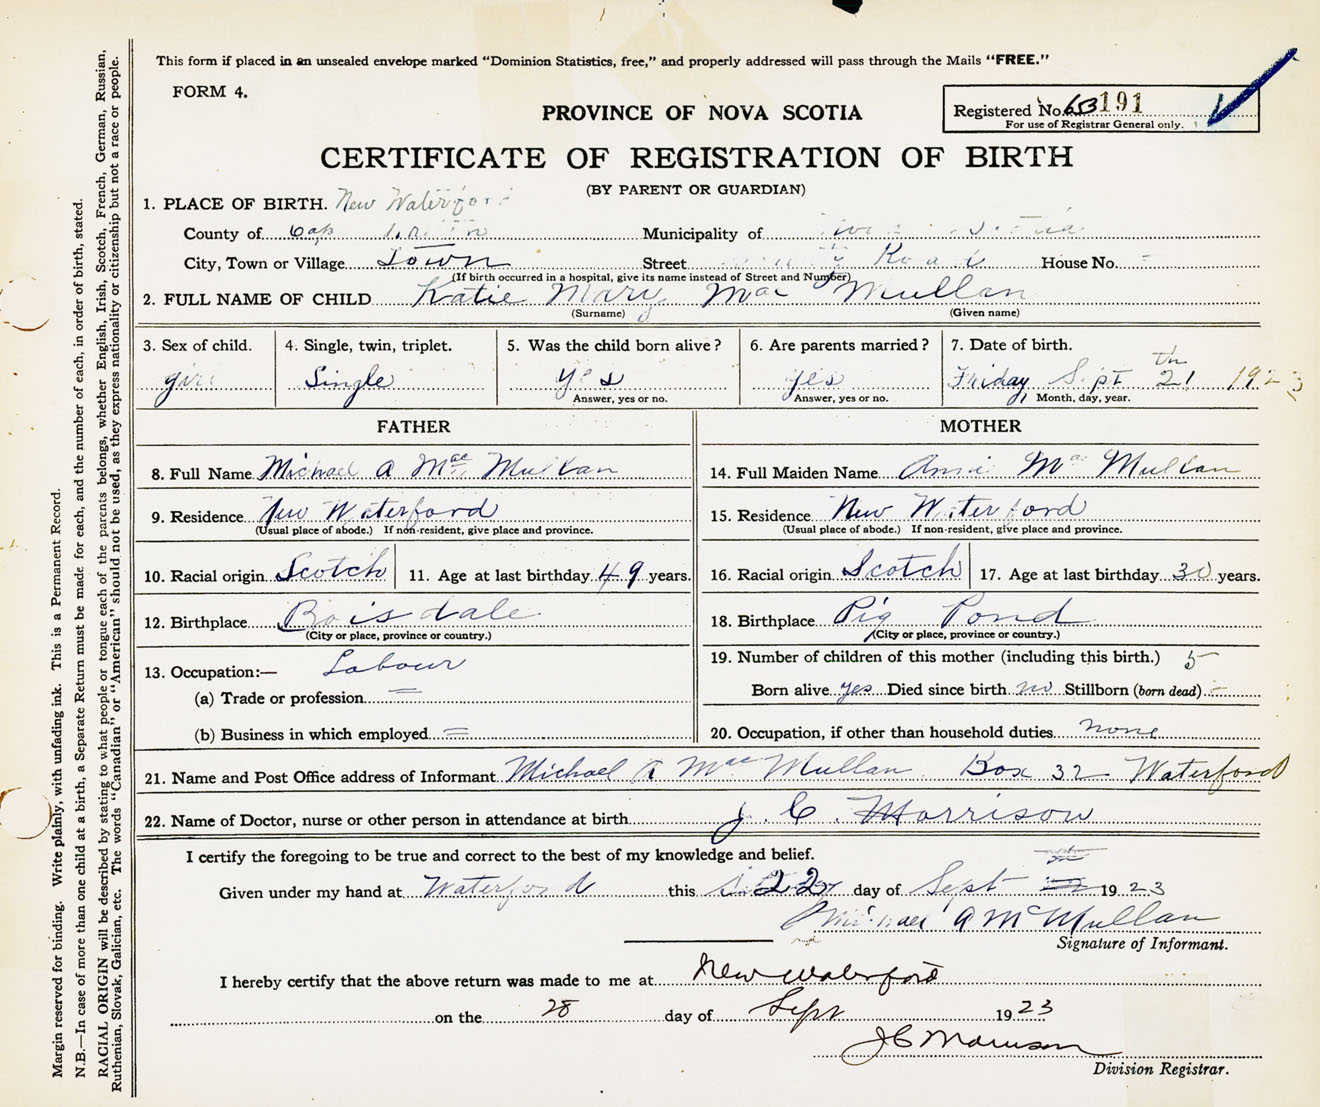 This form if placed in an unsealed envelope marked "Dominion Statistics, free," and properly addressed will pass through the Mails "FREE."
FORM 4.
PROVINCE OF NOVA SCOTIA
Registered No. 653191
For use of Registrar General only.
CERTIFICATE OF REGISTRATION OF BIRTH
(BY PARENT OR GUARDIAN)
1. PLACE OF BIRTH. New Waterford
County of Cap Britton Municipality of
City, Town or Village Town Street Road House No. -
(If birth occurred in a hospital, give its name instead of Street and Number)
2. FULL NAME OF CHILD Katie Mary Mac Mullan
(Surname) (Given name)
3. Sex of child. 4. Single, twin, triplet. 5. Was the child born alive? 6. Are parents married? 7. Date of birth.
girl Single Yes Yes Friday Sept 21th 1923
Answer, yes or no. Answer, yes or no. Month, day, year.
FATHER MOTHER
8. Full Name Michael A Mac Mullan 14. Full Maiden Name Annie Mac Mullan
9. Residence New Waterford 15. Residence New Waterford
(Usual place of abode.) If non-resident, give place and province. (Usual place of abode.) If non-resident, give place and province.
10. Racial origin Scotch 11. Age at last birthday 49 years. 16. Racial origin Scotch 17. Age at last birthday 30 years.
12. Birthplace Boisdale 18. Birthplace Pig Pond
(City or place, province or country.) (City or place, province or country.)
13. Occupation:— Labour 19. Number of children of this mother (including this birth.) 5
(a) Trade or profession = Born alive yes Died since birth no Stillborn (born dead) -
(b) Business in which employed = 20. Occupation, if other than household duties none
21. Name and Post Office address of Informant Michael A Mac Mullan Box 32 Waterford
22. Name of Doctor, nurse or other person in attendance at birth J. C. Morrison
I certify the foregoing to be true and correct to the best of my knowledge and belief.
Given under my hand at Waterford this 22 day of Sept 1923
Michael A McMullan
Signature of Informant.
I hereby certify that the above return was made to me at New Waterford
on the 28 day of Sept 1923
J C Morrison
Division Registrar.
Margin reserved for binding. Write plainly, with unfading ink. This is a Permanent Record.
N.B.—In case of more than one child at a birth, a Separate Return must be made for each, and the number of each, in order of birth, stated.
RACIAL ORIGIN will be described by stating to what people or tongue each of the parents belongs, whether English, Irish, Scotch, French, German, Russian,
Ruthenian, Slovak, Galician, etc. The words "Canadian" or "American" should not be used, as they express nationality or citizenship but not a race or people.